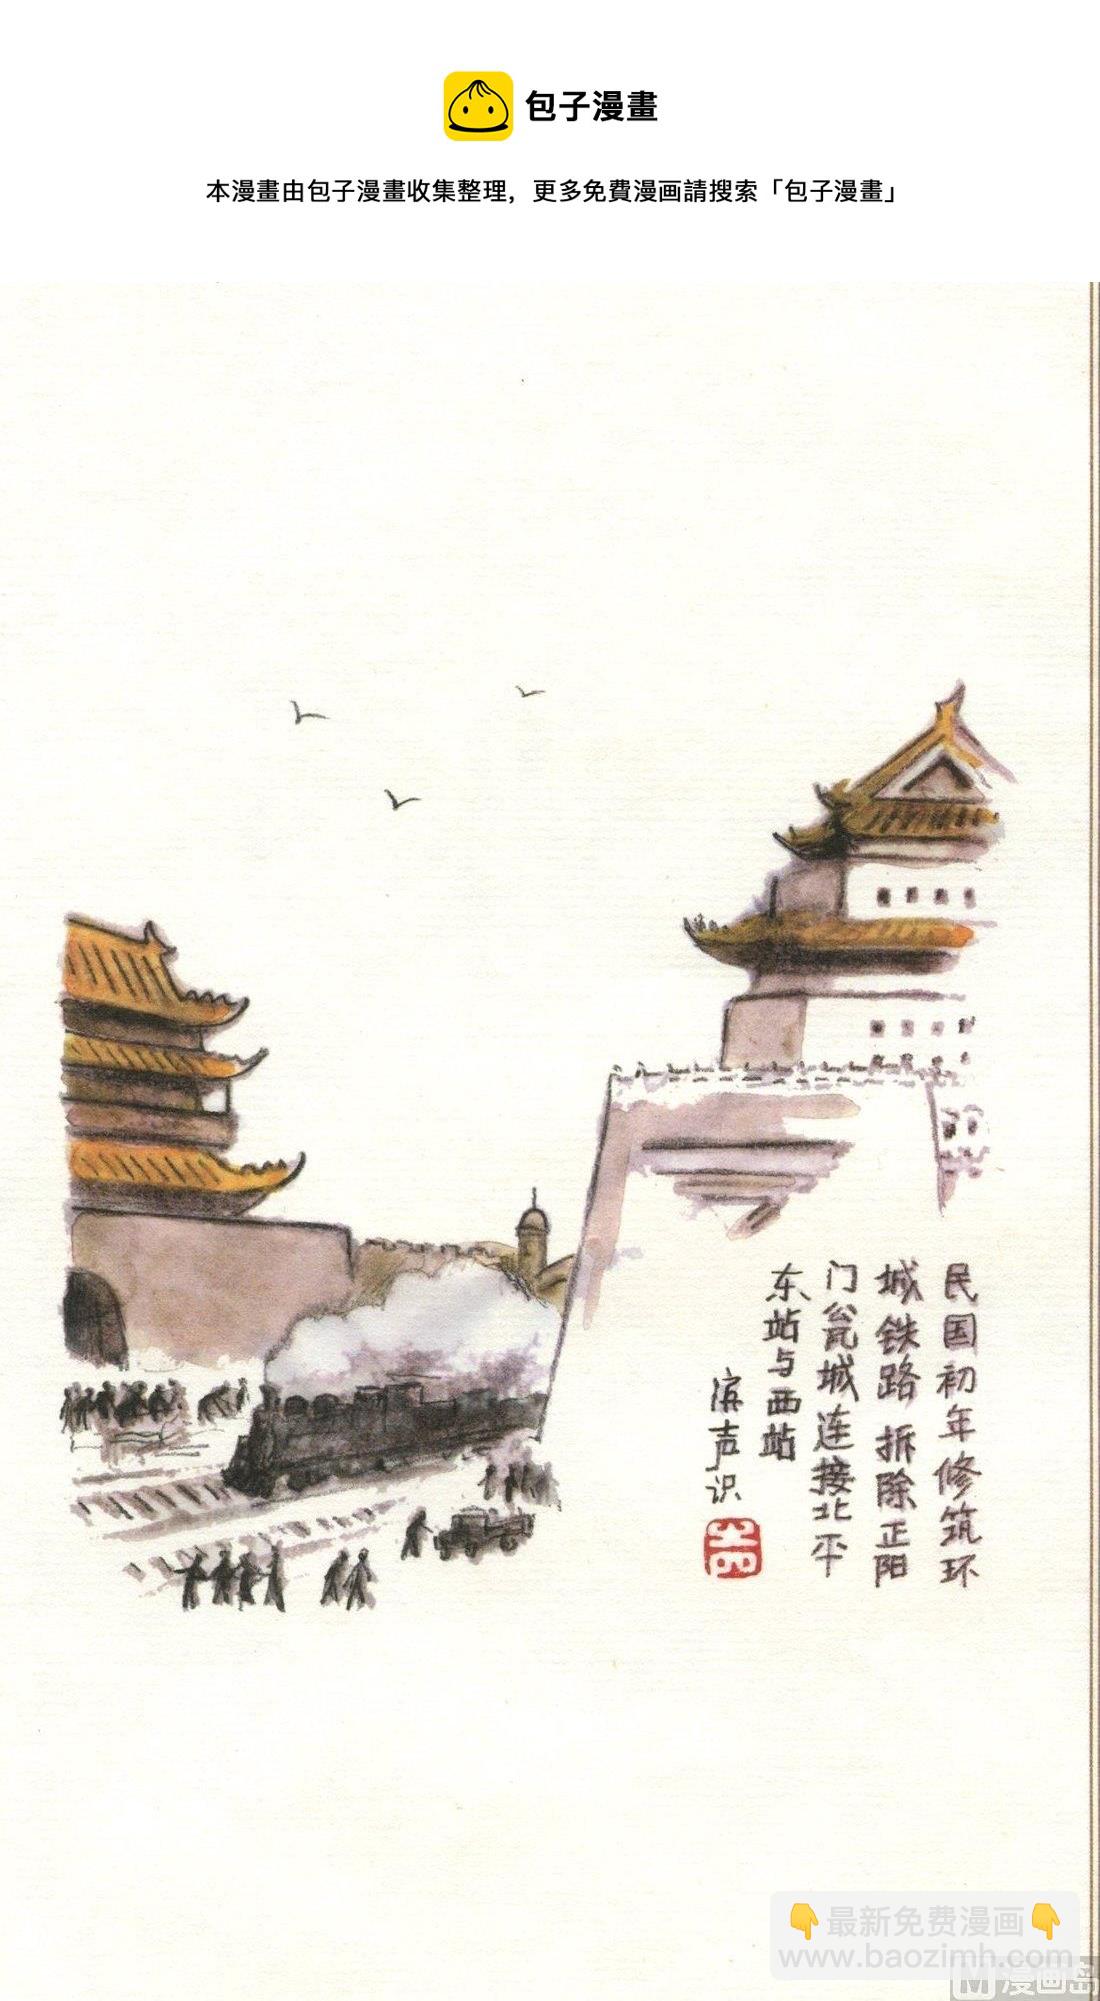 包子漫畫
本漫畫由包子漫畫收集整理，更多免費漫画請搜索「包子漫畫」
民国初年修筑环
城铁路 拆除正阳
门瓮城连接北平
东站与西站
滨声识
最新免费漫画
www.baozimh.com
漫画岛